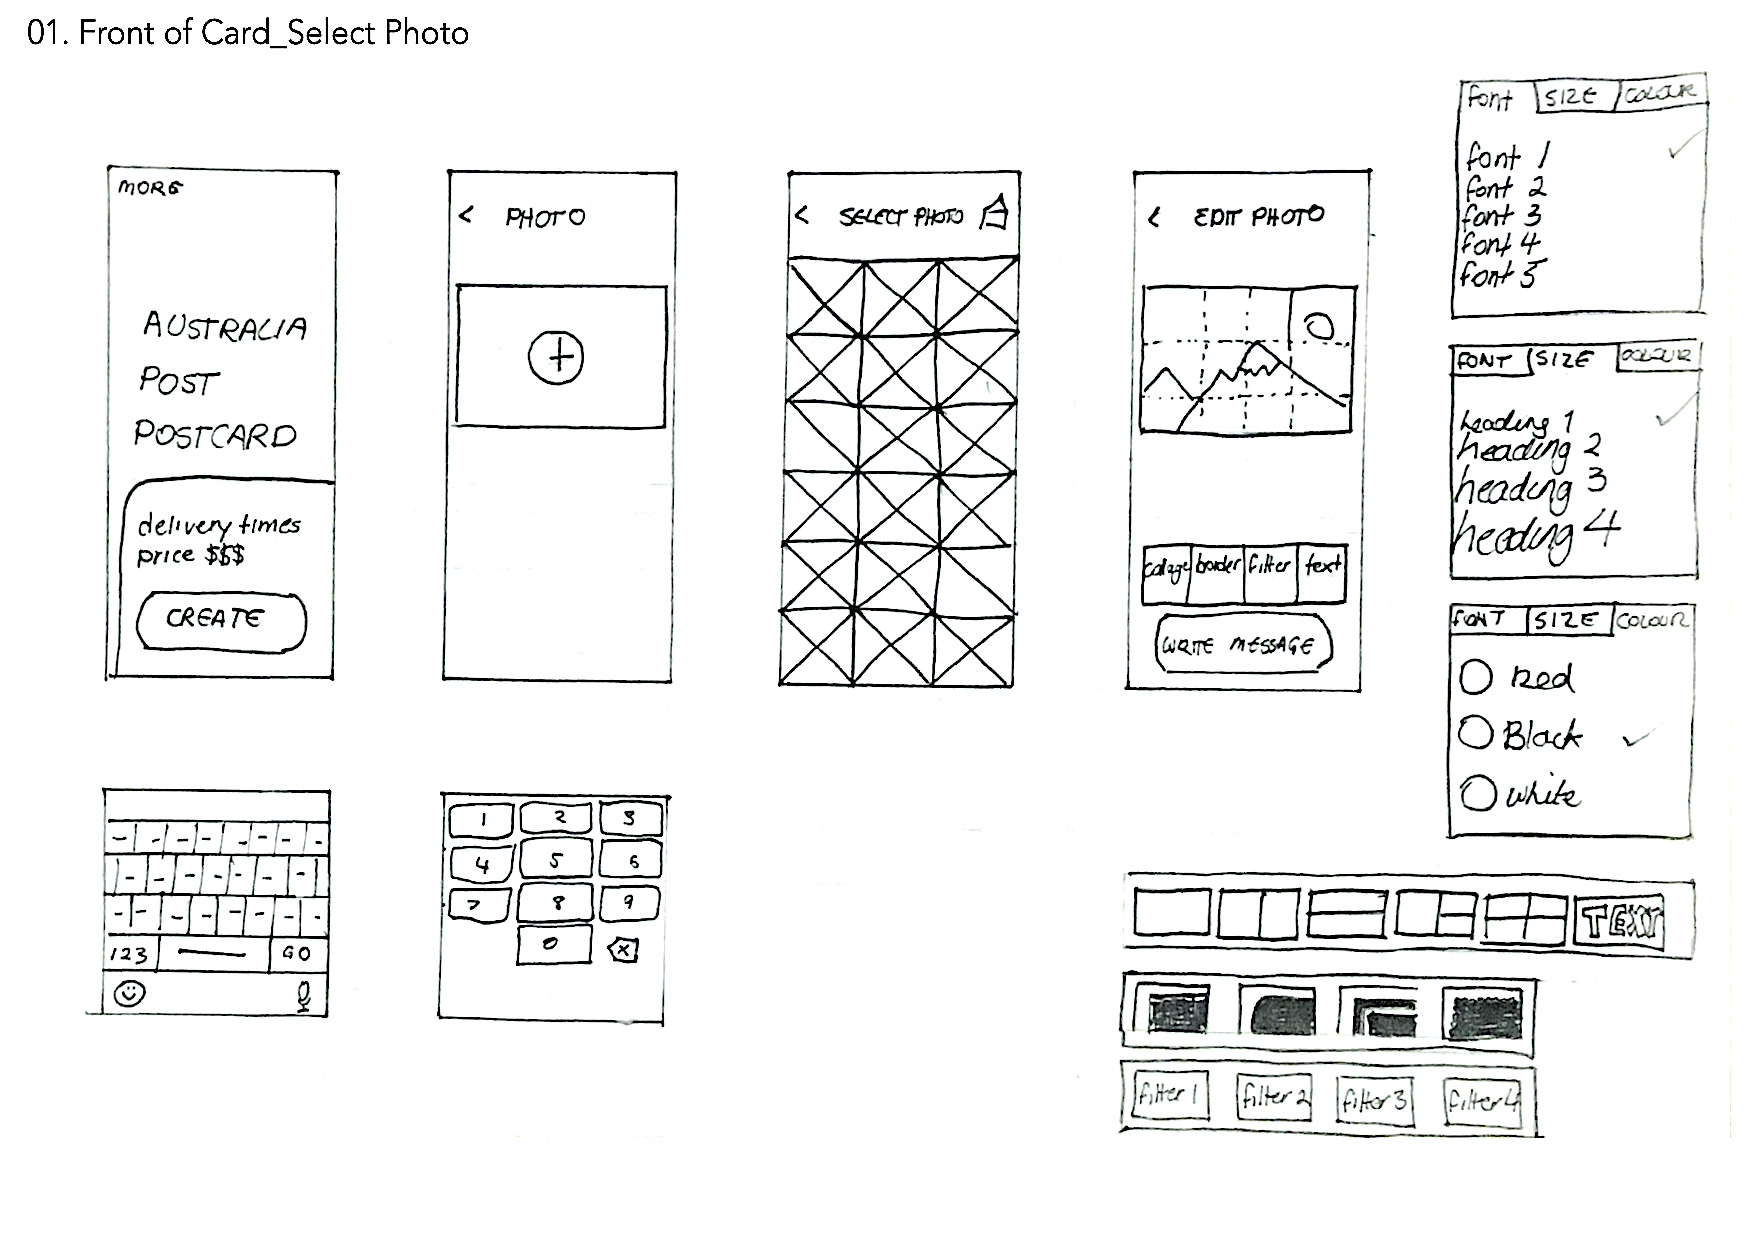 01. Front of Card_Select Photo
MORE
AUSTRALIA
POST
POSTCARD
delivery times
price $$$
CREATE
< PHOTO
< SELECT PHOTO
< EDIT PHOTO
collage border filter text
WRITE MESSAGE
font SIZE COLOUR
font 1
font 2
font 3
font 4
font 5
FONT SIZE COLOUR
heading 1
heading 2
heading 3
heading 4
FONT SIZE COLOUR
Red
Black
white
123 GO
1 2 3
4 5 6
7 8 9
0 x
TEXT
filter 1 filter 2 filter 3 filter 4